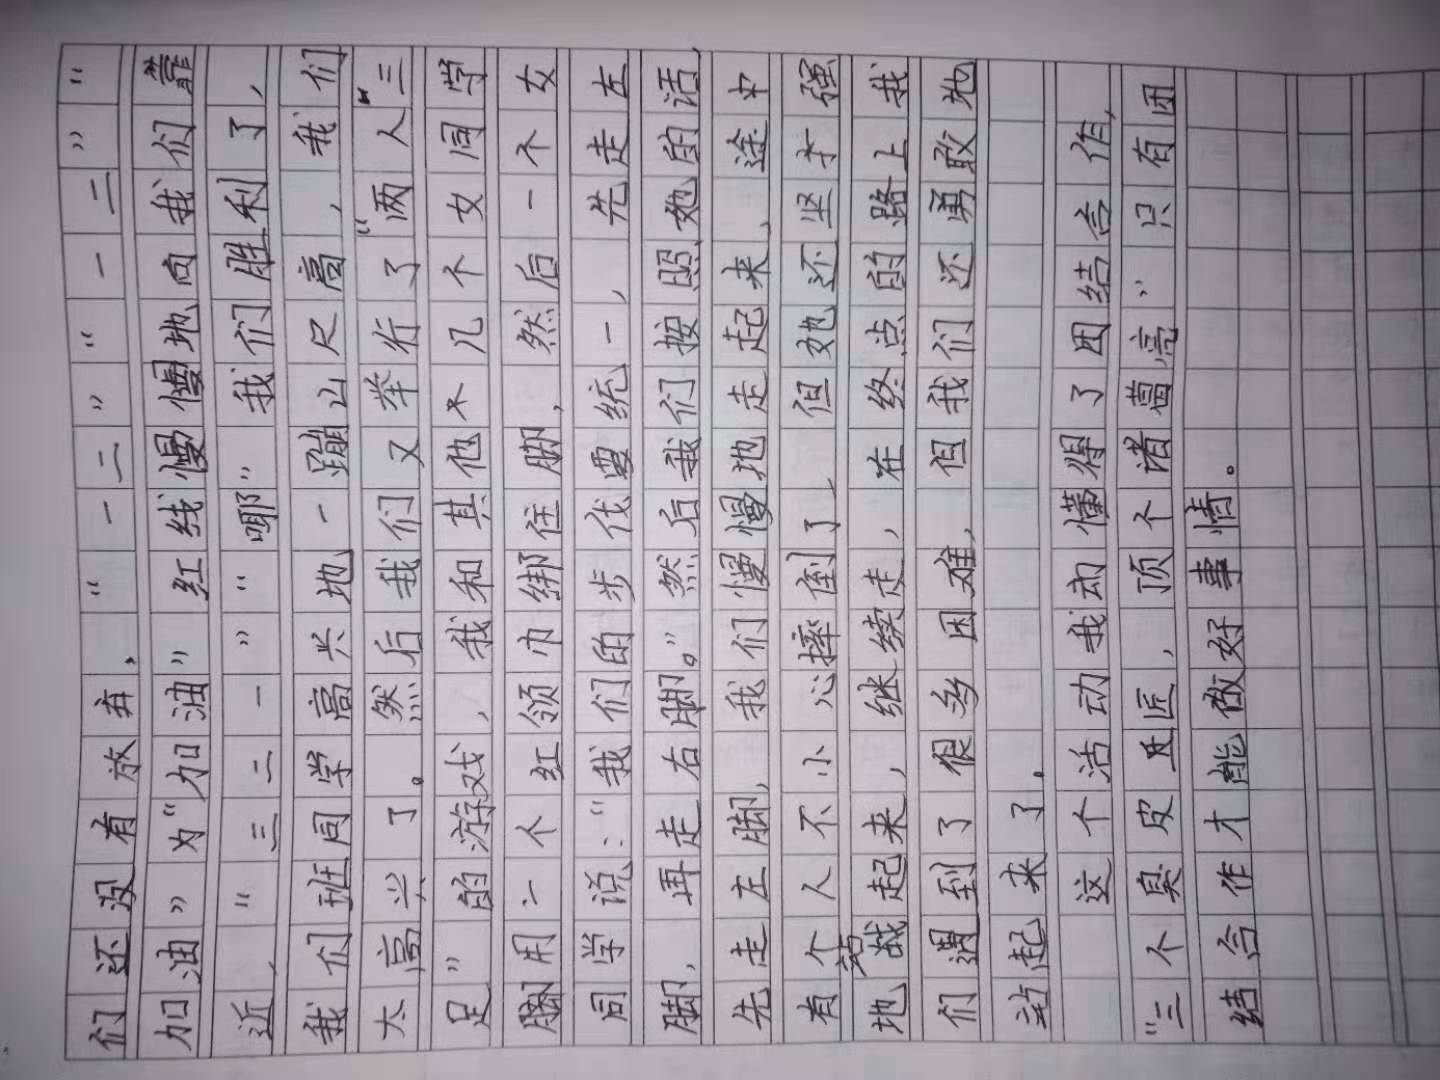 们还没有放弃，“一二”“一二”“
加油”为“加油”红线慢慢地向我们靠
近，“三二一”“嘢”我们胜利了，
我们班同学高兴地一蹦三尺高，我们
太高兴了。然后我们又举行了“两人三
足”的游戏，我和其他木几个女同学
用一个红领巾绑住脚，然后一个女
同学说：“我们的步伐要统一，先走左
脚，再走右脚。”然后我们按照她的话，
先走左脚，我们慢慢地走起来，途中
有个人不小心摔倒了，但她还坚才强
地站起来，继续走，在终点的路上我
们遇到了很多困难，但我们还勇敢地
站起来了。
这个活动我动懂得了团结合作，
“三个臭皮匠，顶个诸葛亮”只有团
结合作才能做好事情。